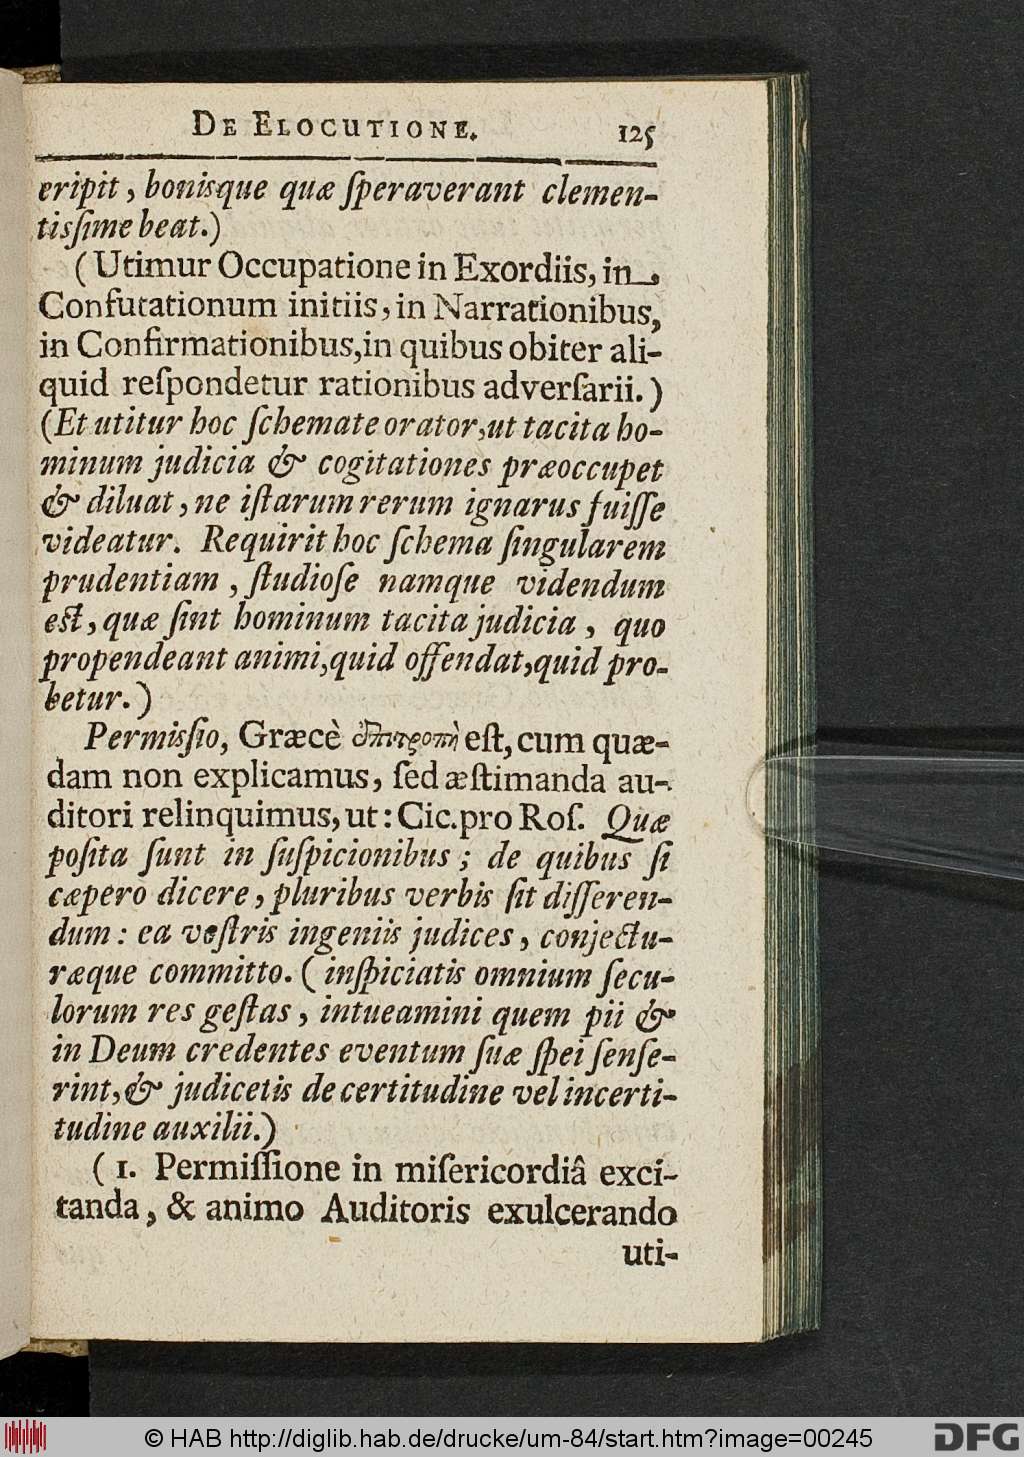 DE ELOCUTIONE. 125
eripit, bonisque quæ ſperaverant clemen-
tisſime beat.)
(Utimur Occupatione in Exordiis, in
Confutationum initiis, in Narrationibus,
in Confirmationibus, in quibus obiter ali-
quid reſpondetur rationibus adverſarii.)
(Et utitur hoc ſchemate orator, ut tacita ho-
minum judicia & cogitationes præoccupet
& diluat, ne iſtarum rerum ignarus fuiſſe
videatur. Requirit hoc ſchema ſingularem
prudentiam, ſtudioſe namque videndum
est, quæ ſint hominum tacita judicia, quo
propendeant animi, quid offendat, quid pro-
betur.)
Permisſio, Græcè ἐπιτροπὴ eſt, cum quæ-
dam non explicamus, ſed æſtimanda au-
ditori relinquimus, ut: Cic. pro Roſ. Quæ
poſita ſunt in ſuſpicionibus; de quibus ſi
cæpero dicere, pluribus verbis ſit diſſeren-
dum: ea veſtris ingeniis judices, conjectu-
ræque committo. (inſpiciatis omnium ſecu-
lorum res geſtas, intueamini quem pii &
in Deum credentes eventum ſuæ ſpei ſenſe-
rint, & judicetis de certitudine vel incerti-
tudine auxilii.)
(1. Permiſſione in miſericordiâ exci-
tanda, & animo Auditoris exulcerando
uti-
© HAB http://diglib.hab.de/drucke/um-84/start.htm?image=00245
DFG